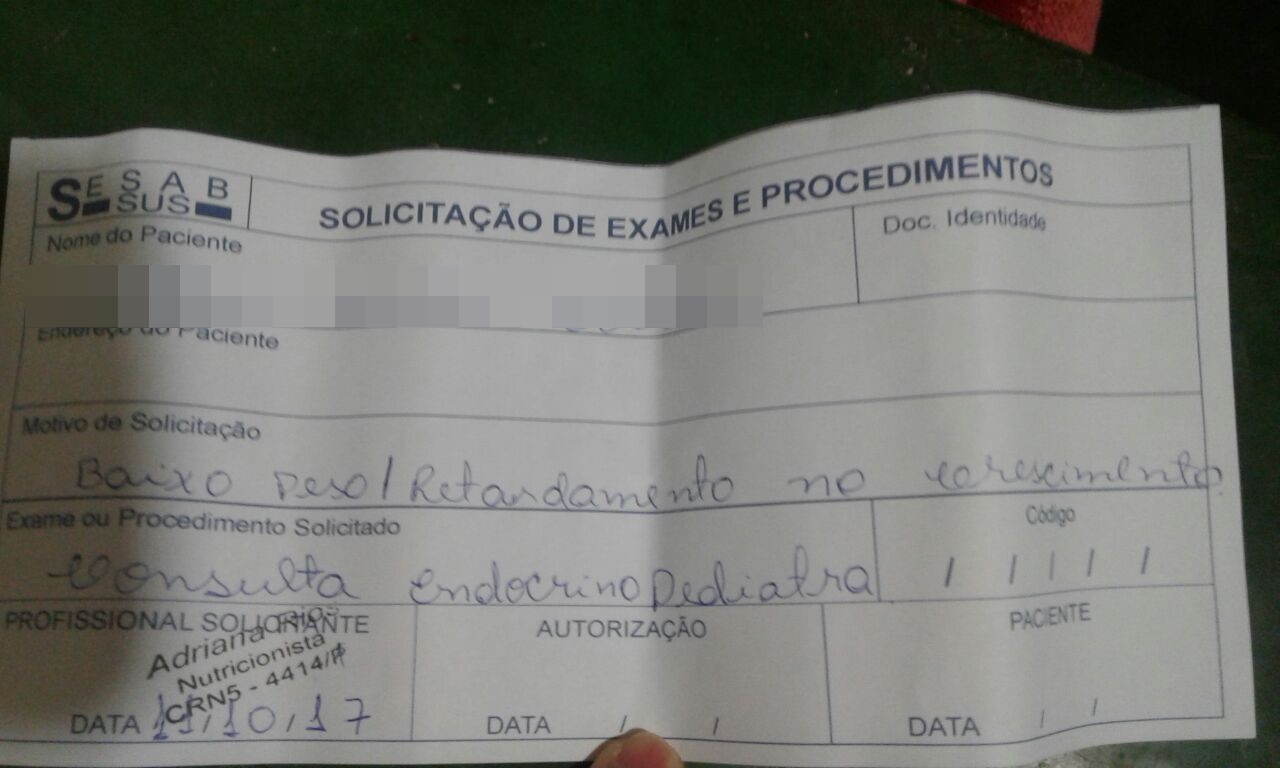 SESAB
SUS
SOLICITAÇÃO DE EXAMES E PROCEDIMENTOS
Nome do Paciente
Doc. Identidade
Endereço do Paciente
Motivo de Solicitação
Baixo peso/Retardamento no crescimento
Exame ou Procedimento Solicitado
Código
Consulta endocrinopediatra
/ / / / /
PROFISSIONAL SOLICITANTE
AUTORIZAÇÃO
PACIENTE
Adriana
Nutricionista
CRN5 - 4414/P
DATA 11/10/17
DATA / /
DATA / /